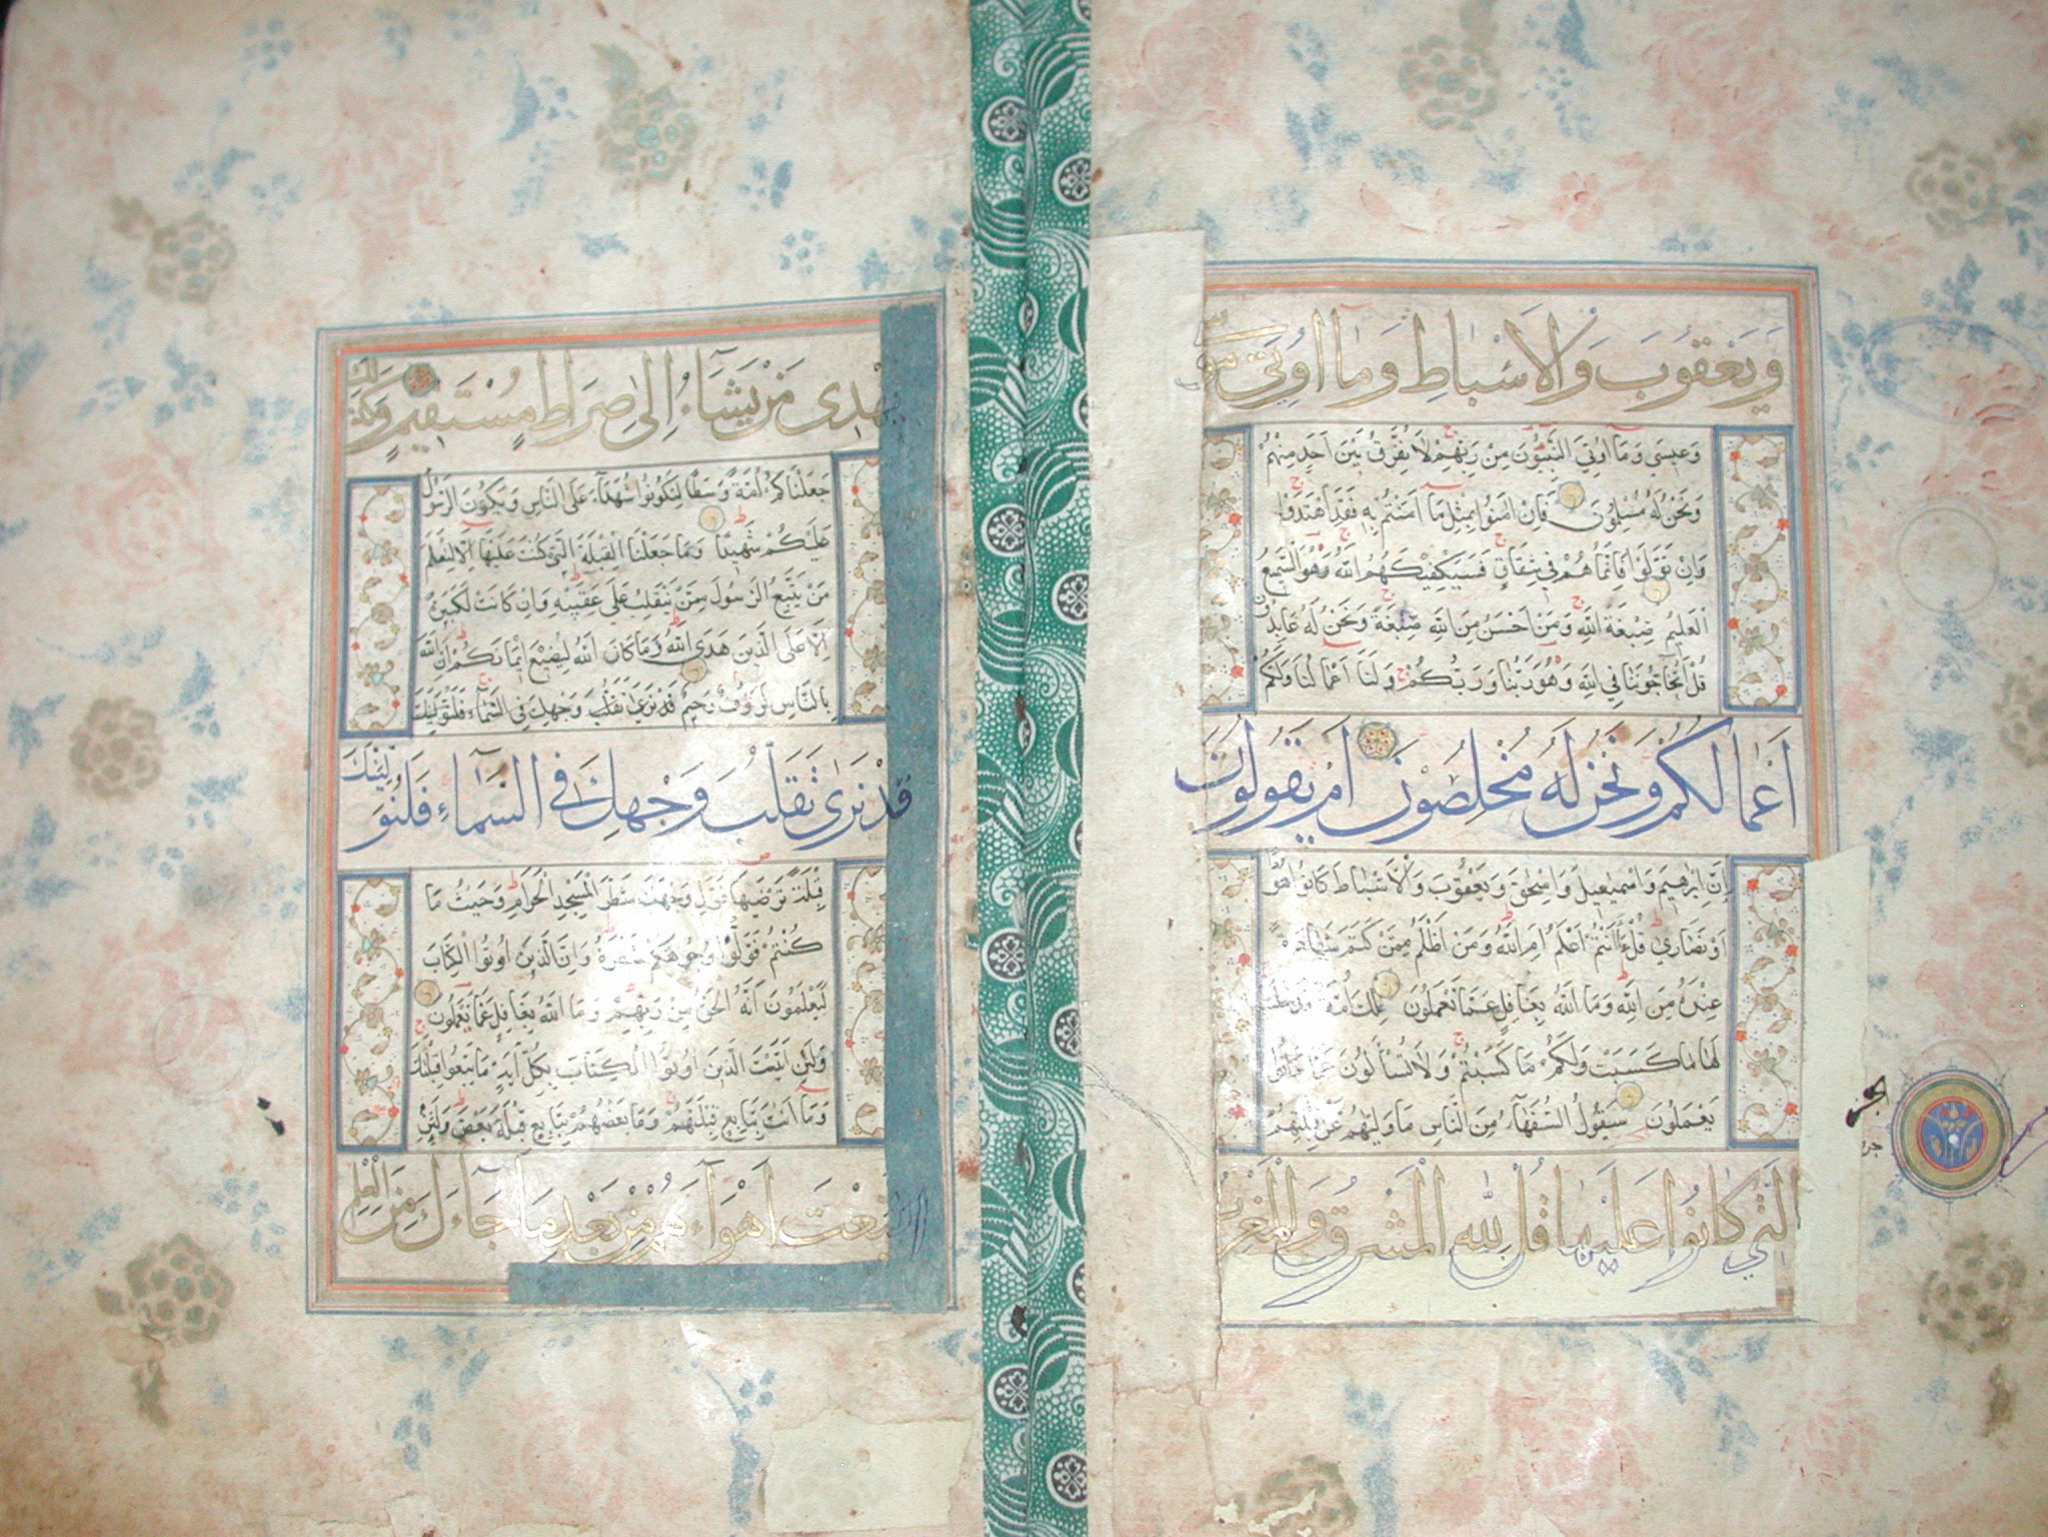 وَيَعْقُوبَ وَالْاَسْبَاطِ وَمَا اُوتِىَ مُوسٰى
وَعِيسٰى وَمَا اُوتِيَ النَّبِيُّونَ مِنْ رَبِّهِمْ لَا نُفَرِّقُ بَيْنَ اَحَدٍ مِنْهُمْ
وَنَحْنُ لَهُ مُسْلِمُونَ فَاِنْ اٰمَنُوا بِمِثْلِ مَا اٰمَنْتُمْ بِهِ فَقَدِ اهْتَدَوْا
وَاِنْ تَوَلَّوْا فَاِنَّمَا هُمْ فِي شِقَاقٍ فَسَيَكْفِيكَهُمُ اللّٰهُ وَهُوَ السَّمِيعُ
الْعَلِيمُ صِبْغَةَ اللّٰهِ وَمَنْ اَحْسَنُ مِنَ اللّٰهِ صِبْغَةً وَنَحْنُ لَهُ عَابِدُونَ
قُلْ اَتُحَاجُّونَنَا فِي اللّٰهِ وَهُوَ رَبُّنَا وَرَبُّكُمْ وَلَنَا اَعْمَالُنَا وَلَكُمْ
اَعْمَالُكُمْ وَنَحْنُ لَهُ مُخْلِصُونَ اَمْ يَقُولُونَ
اِنَّ اِبْرٰهِيمَ وَاِسْمٰعِيلَ وَاِسْحٰقَ وَيَعْقُوبَ وَالْاَسْبَاطَ كَانُوا هُودًا
اَوْ نَصَارٰى قُلْ ءَاَنْتُمْ اَعْلَمُ اَمِ اللّٰهُ وَمَنْ اَظْلَمُ مِمَّنْ كَتَمَ شَهَادَةً
عِنْدَهُ مِنَ اللّٰهِ وَمَا اللّٰهُ بِغَافِلٍ عَمَّا تَعْمَلُونَ تِلْكَ اُمَّةٌ قَدْ خَلَتْ
لَهَا مَا كَسَبَتْ وَلَكُمْ مَا كَسَبْتُمْ وَلَا تُسْأَلُونَ عَمَّا كَانُوا
يَعْمَلُونَ سَيَقُولُ السُّفَهَاءُ مِنَ النَّاسِ مَا وَلّٰيهُمْ عَنْ قِبْلَتِهِمُ
الَّتِي كَانُوا عَلَيْهَا قُلْ لِلّٰهِ الْمَشْرِقُ وَالْمَغْرِبُ
الجز
يَهْدِى مَنْ يَشَاءُ اِلٰى صِرَاطٍ مُسْتَقِيمٍ وَكَذٰلِكَ
جَعَلْنَاكُمْ اُمَّةً وَسَطًا لِتَكُونُوا شُهَدَاءَ عَلَى النَّاسِ وَيَكُونَ الرَّسُولُ
عَلَيْكُمْ شَهِيدًا وَمَا جَعَلْنَا الْقِبْلَةَ الَّتِي كُنْتَ عَلَيْهَا اِلَّا لِنَعْلَمَ
مَنْ يَتَّبِعُ الرَّسُولَ مِمَّنْ يَنْقَلِبُ عَلٰى عَقِبَيْهِ وَاِنْ كَانَتْ لَكَبِيرَةً
اِلَّا عَلَى الَّذِينَ هَدَى اللّٰهُ وَمَا كَانَ اللّٰهُ لِيُضِيعَ اِيمَانَكُمْ اِنَّ اللّٰهَ
بِالنَّاسِ لَرَؤُفٌ رَحِيمٌ قَدْ نَرٰى تَقَلُّبَ وَجْهِكَ فِي السَّمَاءِ فَلَنُوَلِّيَنَّكَ
قَدْ نَرٰى تَقَلُّبَ وَجْهِكَ فِى السَّمَاءِ فَلَنُوَلِّيَنَّكَ
قِبْلَةً تَرْضٰيهَا فَوَلِّ وَجْهَكَ شَطْرَ الْمَسْجِدِ الْحَرَامِ وَحَيْثُ مَا
كُنْتُمْ فَوَلُّوا وُجُوهَكُمْ شَطْرَهُ وَاِنَّ الَّذِينَ اُوتُوا الْكِتَابَ
لَيَعْلَمُونَ اَنَّهُ الْحَقُّ مِنْ رَبِّهِمْ وَمَا اللّٰهُ بِغَافِلٍ عَمَّا يَعْمَلُونَ
وَلَئِنْ اَتَيْتَ الَّذِينَ اُوتُوا الْكِتَابَ بِكُلِّ اٰيَةٍ مَا تَبِعُوا قِبْلَتَكَ
وَمَا اَنْتَ بِتَابِعٍ قِبْلَتَهُمْ وَمَا بَعْضُهُمْ بِتَابِعٍ قِبْلَةَ بَعْضٍ وَلَئِنِ
اتَّبَعْتَ اَهْوَاءَهُمْ مِنْ بَعْدِ مَا جَاءَكَ مِنَ الْعِلْمِ